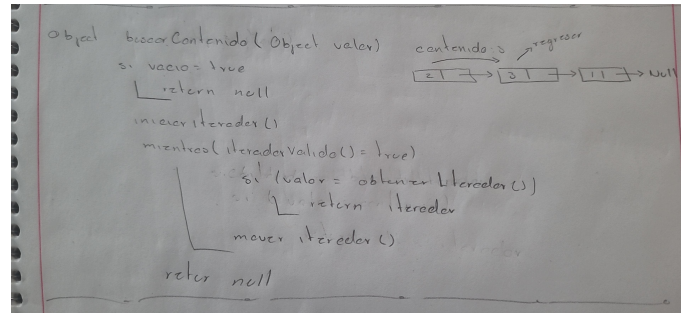 Object buscarContenido(Object valor)
contenido: 3
regresar
si vacio = true
2 3 1 Null
return null
iniciar iterador()
mientras(iteradorValido() = true)
si (valor = obtenerIterador())
return iterador
mover iterador()
retur null